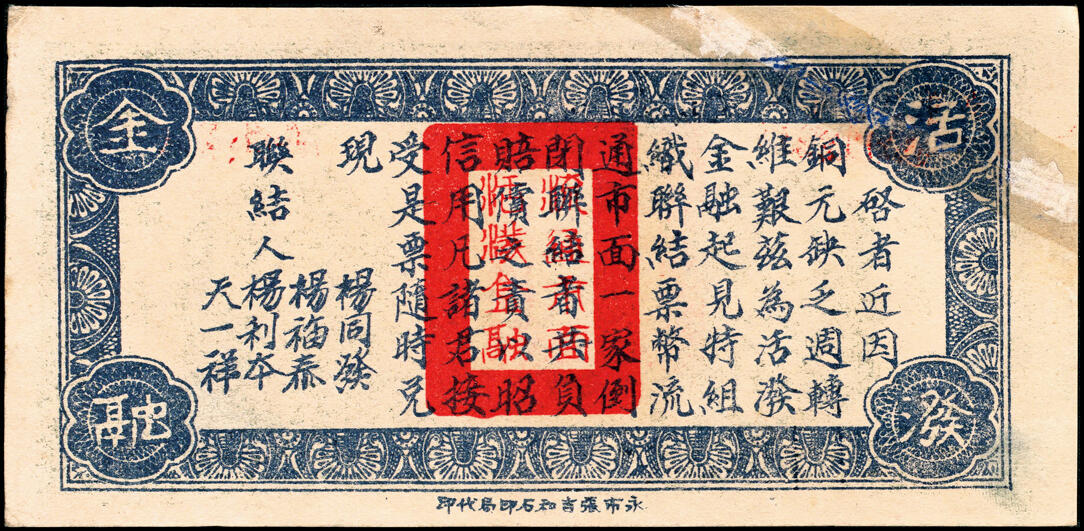 活發
金融
啓者近因
銅元缺乏週轉
維艱茲為活發
金融起見特組
織聯結票幣流
通市面一家倒
閉聯結者共負
賠償之責以昭
信用凡諸君接
受是票隨時兌
現
聯結人
楊同發
楊福泰
楊利本
天一祥
市面
活潑金融
永市張吉和石印局代印